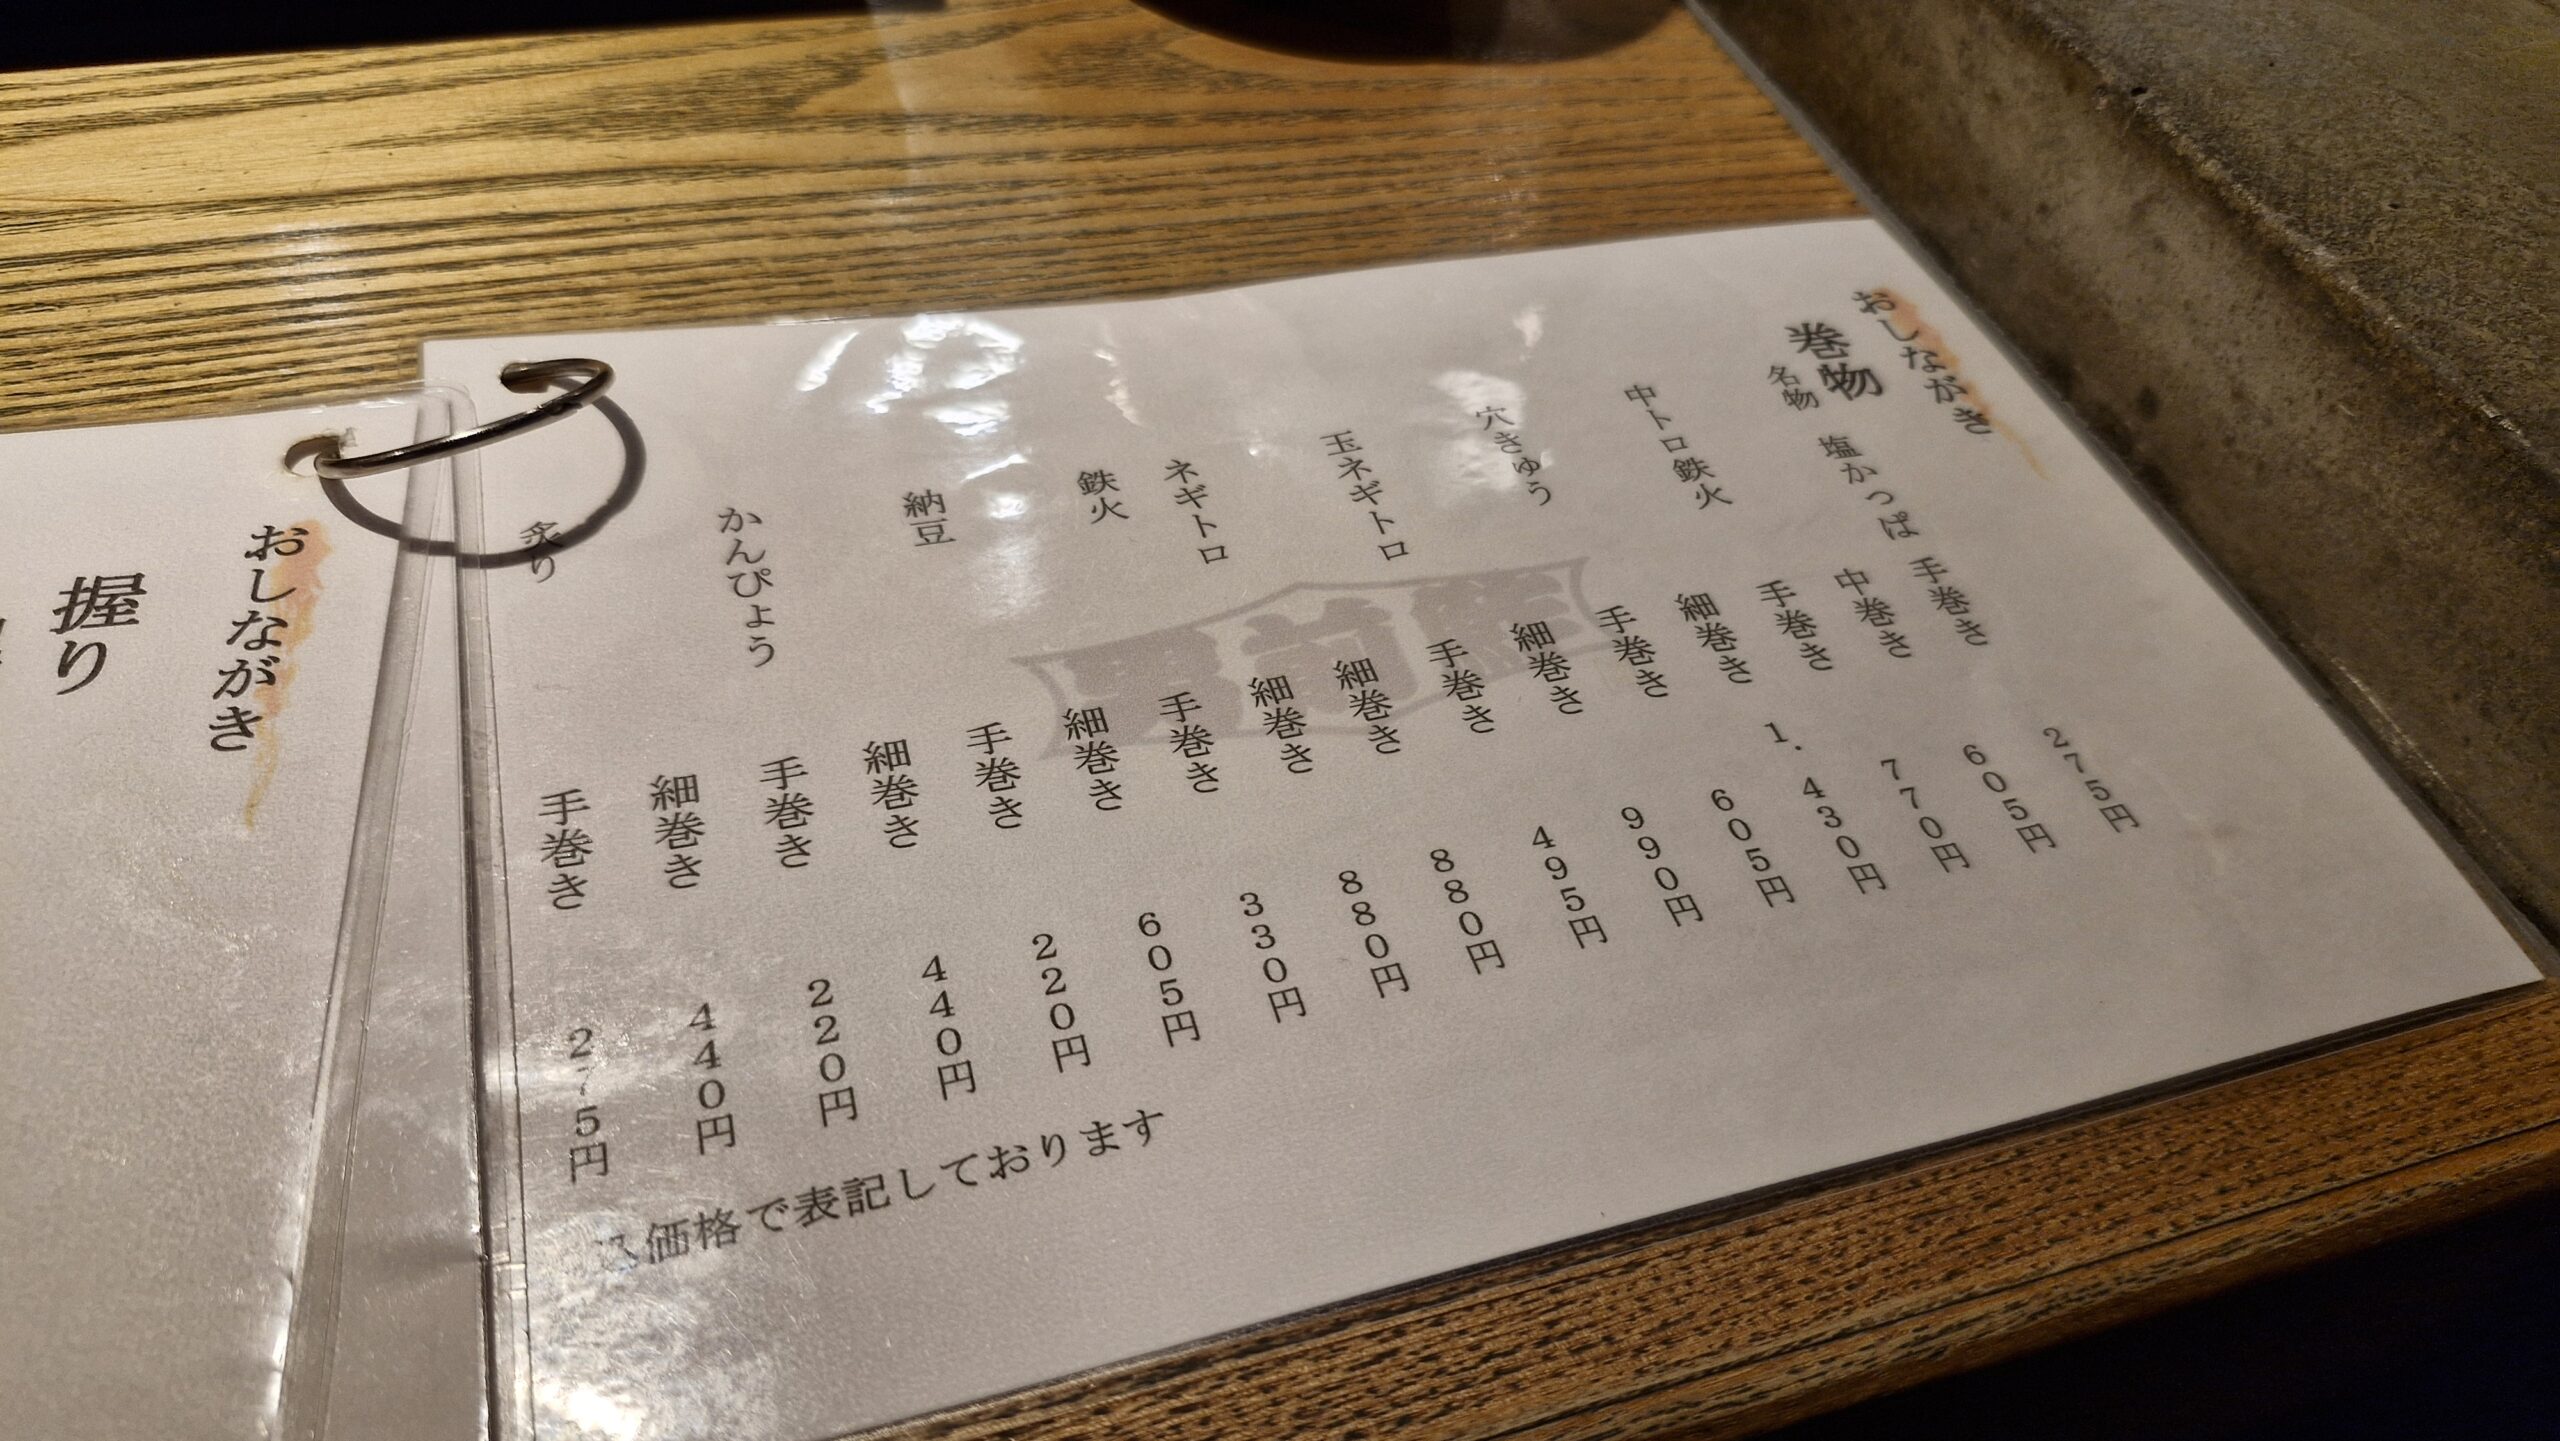 おしながき
巻物
名物 塩かっぱ 手巻き 275円
中巻き 605円
中トロ鉄火 手巻き 770円
細巻き 1.430円
穴きゅう 手巻き 605円
細巻き 990円
玉ネギトロ 手巻き 495円
細巻き 880円
ネギトロ 細巻き 880円
鉄火 手巻き 330円
細巻き 605円
納豆 手巻き 220円
細巻き 440円
かんぴょう 手巻き 220円
細巻き 440円
炙り 手巻き 275円
込価格で表記しております
おしながき
握り